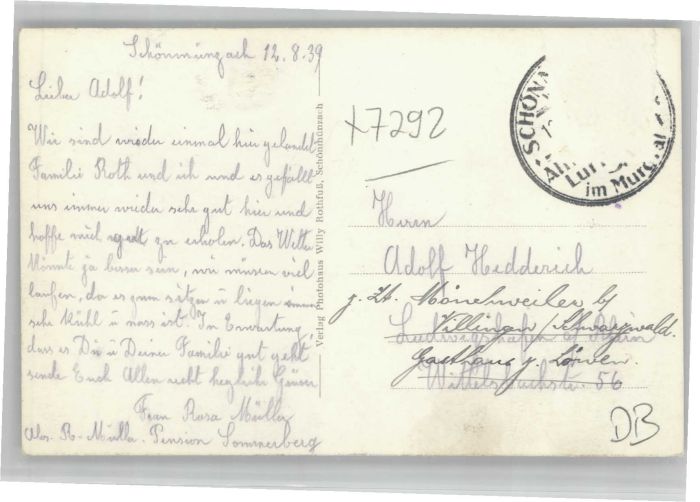 Schönmünzach 12.8.39
Lieber Adolf!
Wir sind wieder einmal hier gelandet
Familie Roth und ich und es gefällt
uns immer wieder sehr gut hier und
hoffe mich gut zu erholen. Das Wetter
könnte ja besser sein, wir müssen viel
laufen, da es zum sitzen u liegen immer
sehr kühl u nass ist. In Erwartung,
dass es Dir u Deiner Familie gut geht
sende Euch Allen recht herzliche Grüsse
Frau Rosa Müller
Abs. R. Müller. Pension Sommerberg
Verlag Photohaus Willy Rothfuß, Schönmünzach
x7292
SCHÖN
Lu
im Murgtal
Herrn
Adolf Hedderich
z. Zt. Mönchweiler b/
Villingen / Schwarzwald.
Ludwigshafen a/ Rhein
Gasthaus z. Löwen.
Wittelsbachstr. 56
DB